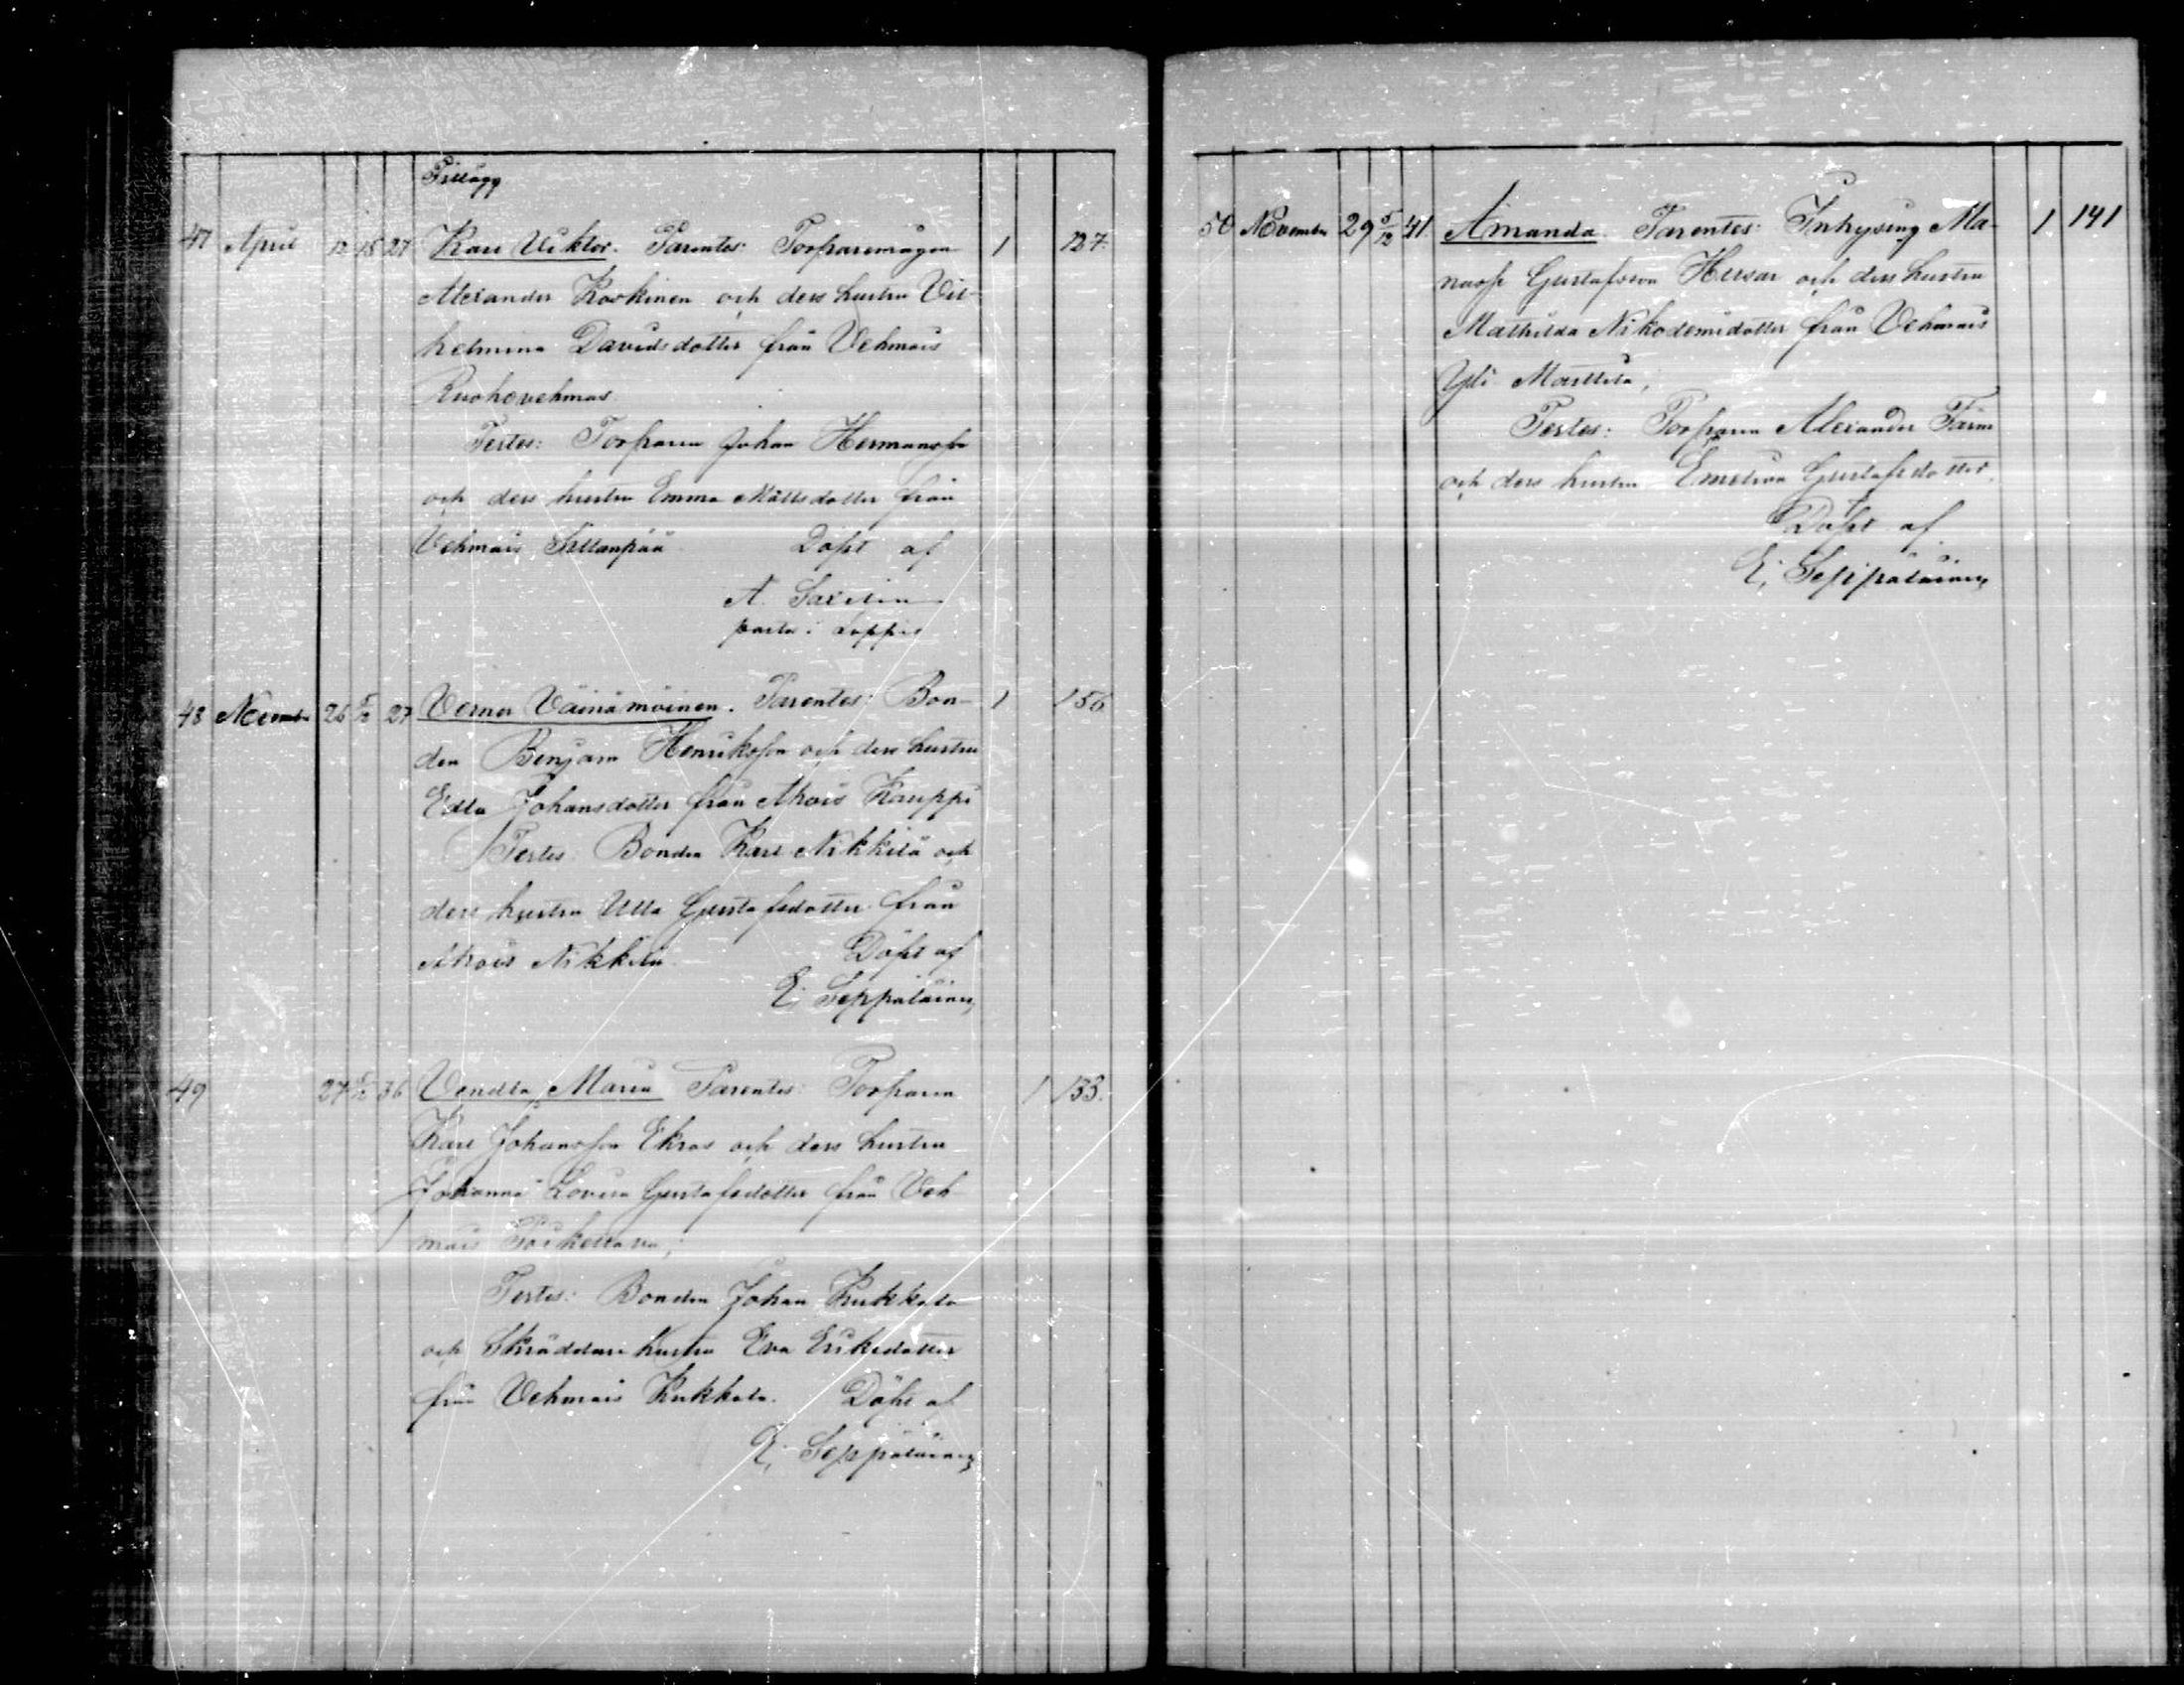 Tillägg
47 April 12 18 27 Karl Viktor. Parentes: Torparemågen 1 127.
Alexander Koskinen och dess hustru Vil-
helmina Davidsdotter från Vehmais
Ruohovehmas
Testes: Torparen Johan Hermansson
och dess hustru Emma Mattsdotter från
Vehmais Sillanpää Döpt af
A. Saxelin
pastor i Loppis
48 November 26 5/12 27 Verner Väinämöinen. Parentes: Bon- 1 156
den Benjam Henriksson och dess hustru
Edla Johansdotter från Ahois Kauppi
Testes: Bonden Karl Nikkilä och
dess hustru Ulla Gustafsdotter från
Ahois Nikkilä Döpt af
E. Seppäläinen
49 27 5/12 36 Vendla Maria Parentes: Torparen 1 133.
Karl Johansson Ekros och dess hustru
Johanna Lovisa Gustafsdotter från Veh-
mais
Testes: Bonden Johan Kukkola
och Skräddare hustru Eva Eriksdotter
från Vehmais Kukkola. Döpt af
E. Seppäläinen
50 November 29 5/12 41 Amanda. Parentes: Inhysing Ma-
1 141
nass Gustafsson Hussar och dess hustru
Mathilda Nikodemidotter från Vehmais
Yli Marttila,
Testes: Torparen Alexander Färm
och dess hustru Emelina Gustafsdotter.
Döpt af
E. Seppäläinen